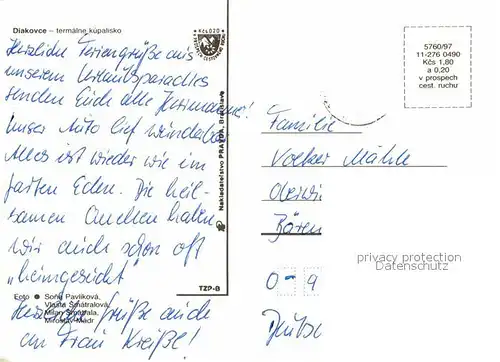 Diakovce – termálne kúpalisko
Kčs 0.20
Herzliche Feriengrüße aus
unserem Urlaubsparadies
senden Euch alle Hermanne!
Unser Auto lief wunderbar
Alles ist wieder wie im
Garten Eden. Die heil-
samen Quellen haben
wir auch schon oft
„heimgesucht"
Foto ● Soňa Pavlíková,
Vlasta Šmátralová,
Milan Šmátrala,
Miroslav Mádr
Grüße auch
an Frau Kreiße!
Nakladateľstvo PRÁTOR, Bratislava
TZP-B
5760/97
11-276 0490
Kčs 1,80
a 0,20
v prospech
cest. ruchu
Familie
Volker Mähle
Bären
privacy protection
Datenschutz
O - 9